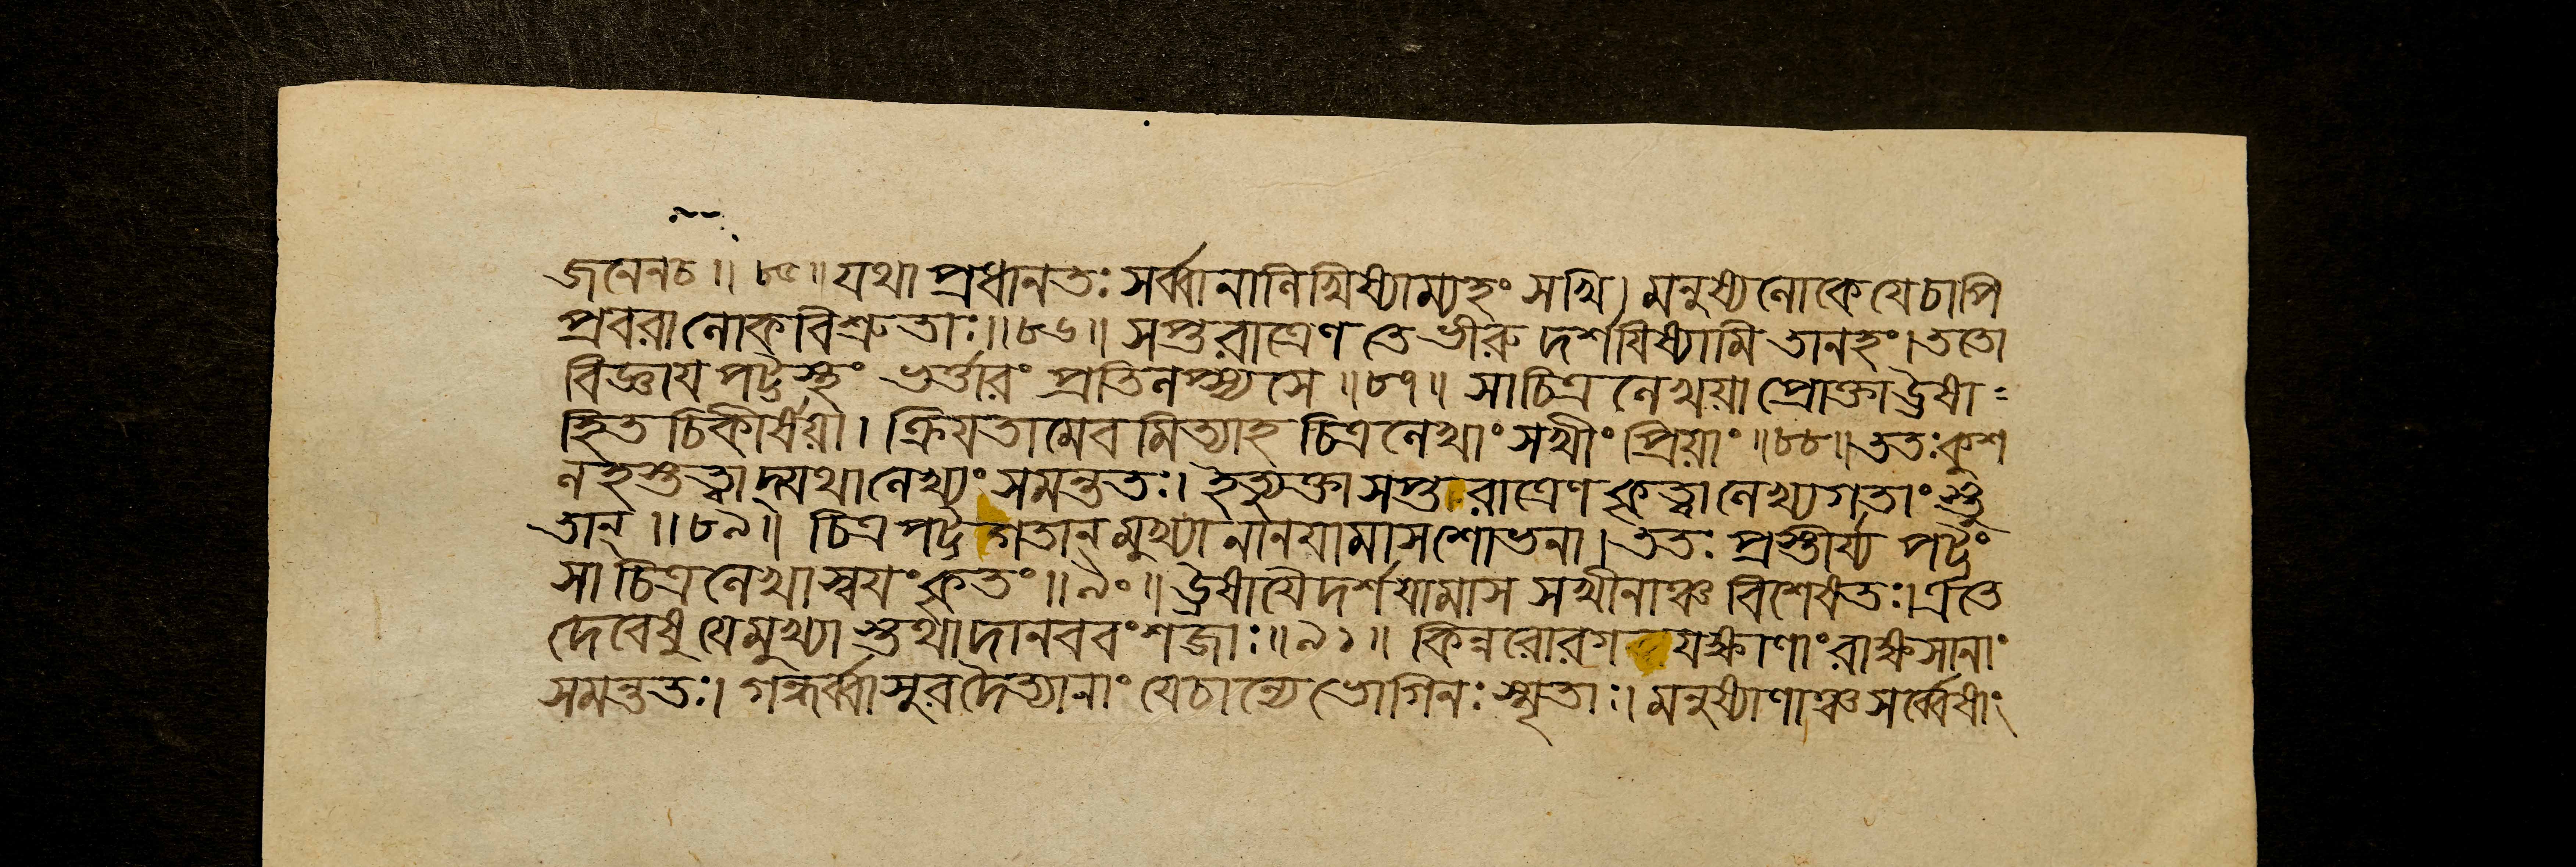 জনেনচ॥ ৮৫॥ যথা প্রধানতঃ সর্ব্বানালিখিষ্যাম্যহং সখি। মনুষ্যলোকে যে চাপি
প্রবরা লোকবিশ্রুতাঃ॥৮৬॥ সপ্তরাত্রেণ তে ভীরু দর্শযিষ্যামি তানহং। ততো
বিজ্ঞায পট্টস্থং ভর্ত্তারং প্রতিলপ্স্যসে॥৮৭॥ সা চিত্রলেখয়া প্রোক্তা উষা=
হিত চিকীর্ষয়া। ক্রিযতামেবমিত্যাহ চিত্রলেখাং সখীং প্রিয়াং॥৮৮॥ ততঃ কুশ
লহস্তত্বাদ্যথালেখ্যং সমন্ততঃ। ইত্যুক্ত্বা সপ্তরাত্রেণ কৃত্বালেখ্যগতাংস্তু
তান্॥৮৯॥ চিত্রপট্টগতান্ মুখ্যানানয়ামাস শোভনা। ততঃ প্রস্তীর্য্য পট্টং
সা চিত্রলেখা স্বযংকৃতং॥৯০॥ উষাযৈ দর্শযামাস সখীনাঞ্চ বিশেষতঃ। এতে
দেবেষু যে মুখ্যাস্তথা দানববংশজাঃ॥৯১॥ কিন্নরোরগ যক্ষাণাং রাক্ষসানাং
সমন্ততঃ। গন্ধর্ব্বাসুরদৈত্যানাং যে চান্যে ভোগিনঃ স্মৃতাঃ। মনুষ্যাণাঞ্চ সর্ব্বেষাং